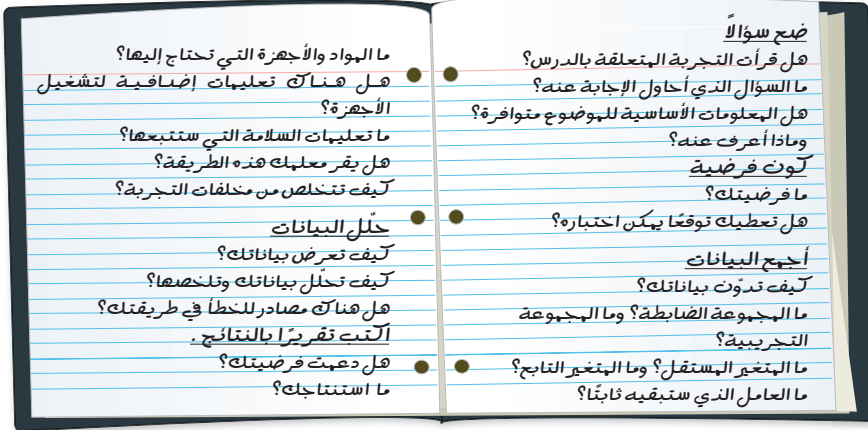 ضع سؤالاً
هل قرأت التجربة المتعلقة بالدرس؟
ما السؤال الذي أحاول الإجابة عنه؟
هل المعلومات الأساسية للموضوع متوافرة؟
وماذا أعرف عنه؟
كوّن فرضية
ما فرضيتك؟
هل تعطيك توقعًا يمكن اختباره؟
أجمع البيانات
كيف تدوّن بياناتك؟
ما المجموعة الضابطة؟ وما المجموعة
التجريبية؟
ما المتغير المستقل؟ وما المتغير التابع؟
ما العامل الذي ستبقيه ثابتًا؟
ما المواد والأجهزة التي تحتاج إليها؟
هل هناك تعليمات إضافية لتشغيل
الأجهزة؟
ما تعليمات السلامة التي ستتبعها؟
هل يقر معلمك هذه الطريقة؟
كيف تتخلص من مخلفات التجربة؟
حلّل البيانات
كيف تعرض بياناتك؟
كيف تحلّل بياناتك وتلخصها؟
هل هناك مصادر للخطأ في طريقتك؟
اكتب تقريرًا بالنتائج .
هل دعمت فرضيتك؟
ما استنتاجك؟